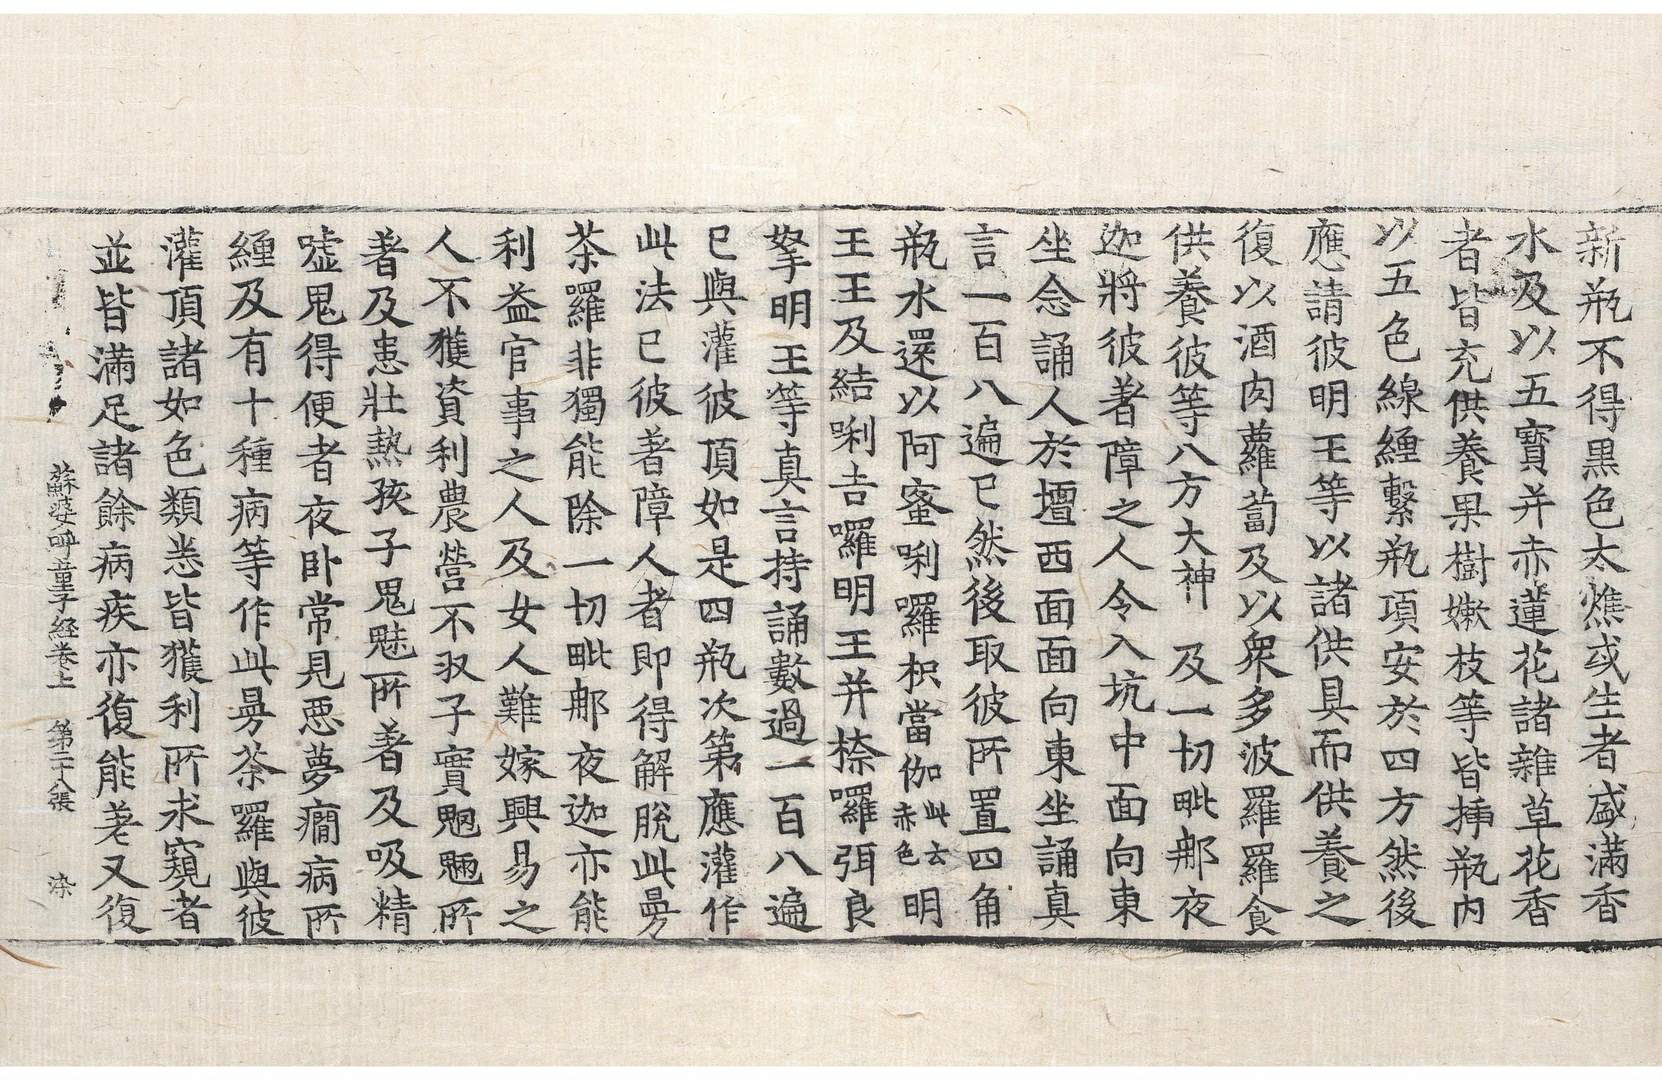 新瓶不得黒色太燋或生者盛滿香
水及以五寶并赤蓮花諸雜草花香
者皆充供養果樹嫰枝等皆揷瓶内
以五色線纏繫瓶項安於四方然後
應請彼明王等以諸供具而供養之
復以酒肉蘿蔔及以衆多波羅羅食
供養彼等八方大神 及一切毗那夜
迦將彼著障之人令入坑中面向東
坐念誦人於壇西面面向東坐誦真
言一百八遍已然後取彼所置四角
瓶水還以阿蜜唎囉枳當伽此云赤色明
王王及結唎吉囉明王并㮈囉弭良
拏明王等真言持誦數過一百八遍
已與灌彼頂如是四瓶次第應灌作
此法已彼著障人者即得解脫此曼
荼羅非獨能除一切毗那夜迦亦能
利益官事之人及女人難嫁興易之
人不獲資利農營不収子實魍魎所
著及患壯熱孩子鬼魅所著及吸精
噓鬼得便者夜卧常見惡夢癇病所
纏及有十種病等作此曼荼羅與彼
灌頂諸如色類悉皆獲利所求窺者
並皆滿足諸餘病疾亦復能差又復
蘇婆呼童子經卷上 第二十八張 染